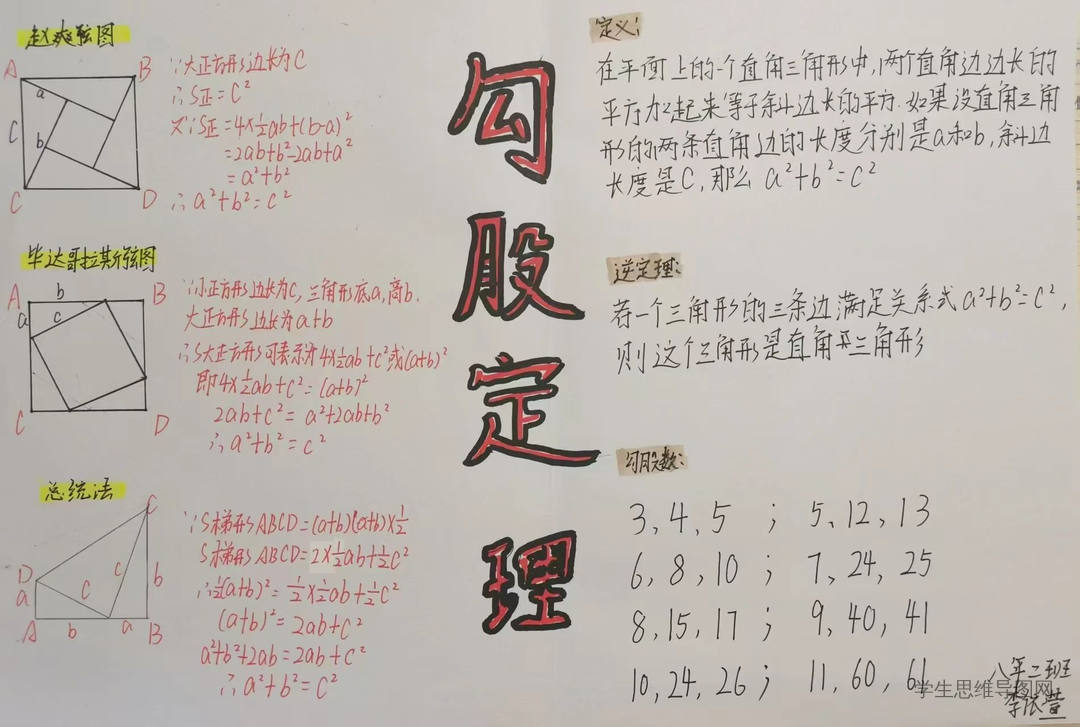 赵爽弦图
A
B
a
C
b
C
D
∵大正方形边长为C
∴S正=C²
又∵S正=4×½ab+(b-a)²
=2ab+b²-2ab+a²
=a²+b²
∴a²+b²=c²
毕达哥拉斯弦图
A
b
B
a
c
C
D
∵小正方形边长为c,三角形底a,高b.
大正方形边长为a+b
∴S大正方形可表示为4×½ab+c²或(a+b)²
即4×½ab+c²=(a+b)²
2ab+c²=a²+2ab+b²
∴a²+b²=c²
总统法
C
D
c
c
b
a
A
b
a
B
∵S梯形ABCD=(a+b)(a+b)×½
S梯形ABCD=2×½ab+½c²
∴½(a+b)²=½×½ab+½c²
(a+b)²=2ab+c²
a²+b²+2ab=2ab+c²
∴a²+b²=c²
勾股定理
定义:
在平面上的一个直角三角形中,两个直角边边长的
平方加起来等于斜边长的平方.如果设直角三角
形的两条直角边的长度分别是a和b,斜边
长度是C,那么a²+b²=c²
逆定理:
若一个三角形的三条边满足关系式a²+b²=c²,
则这个三角形是直角三角形
勾股数:
3,4,5;5,12,13
6,8,10;7,24,25
8,15,17;9,40,41
10,24,26;11,60,61
八年二班
学生思维导图网